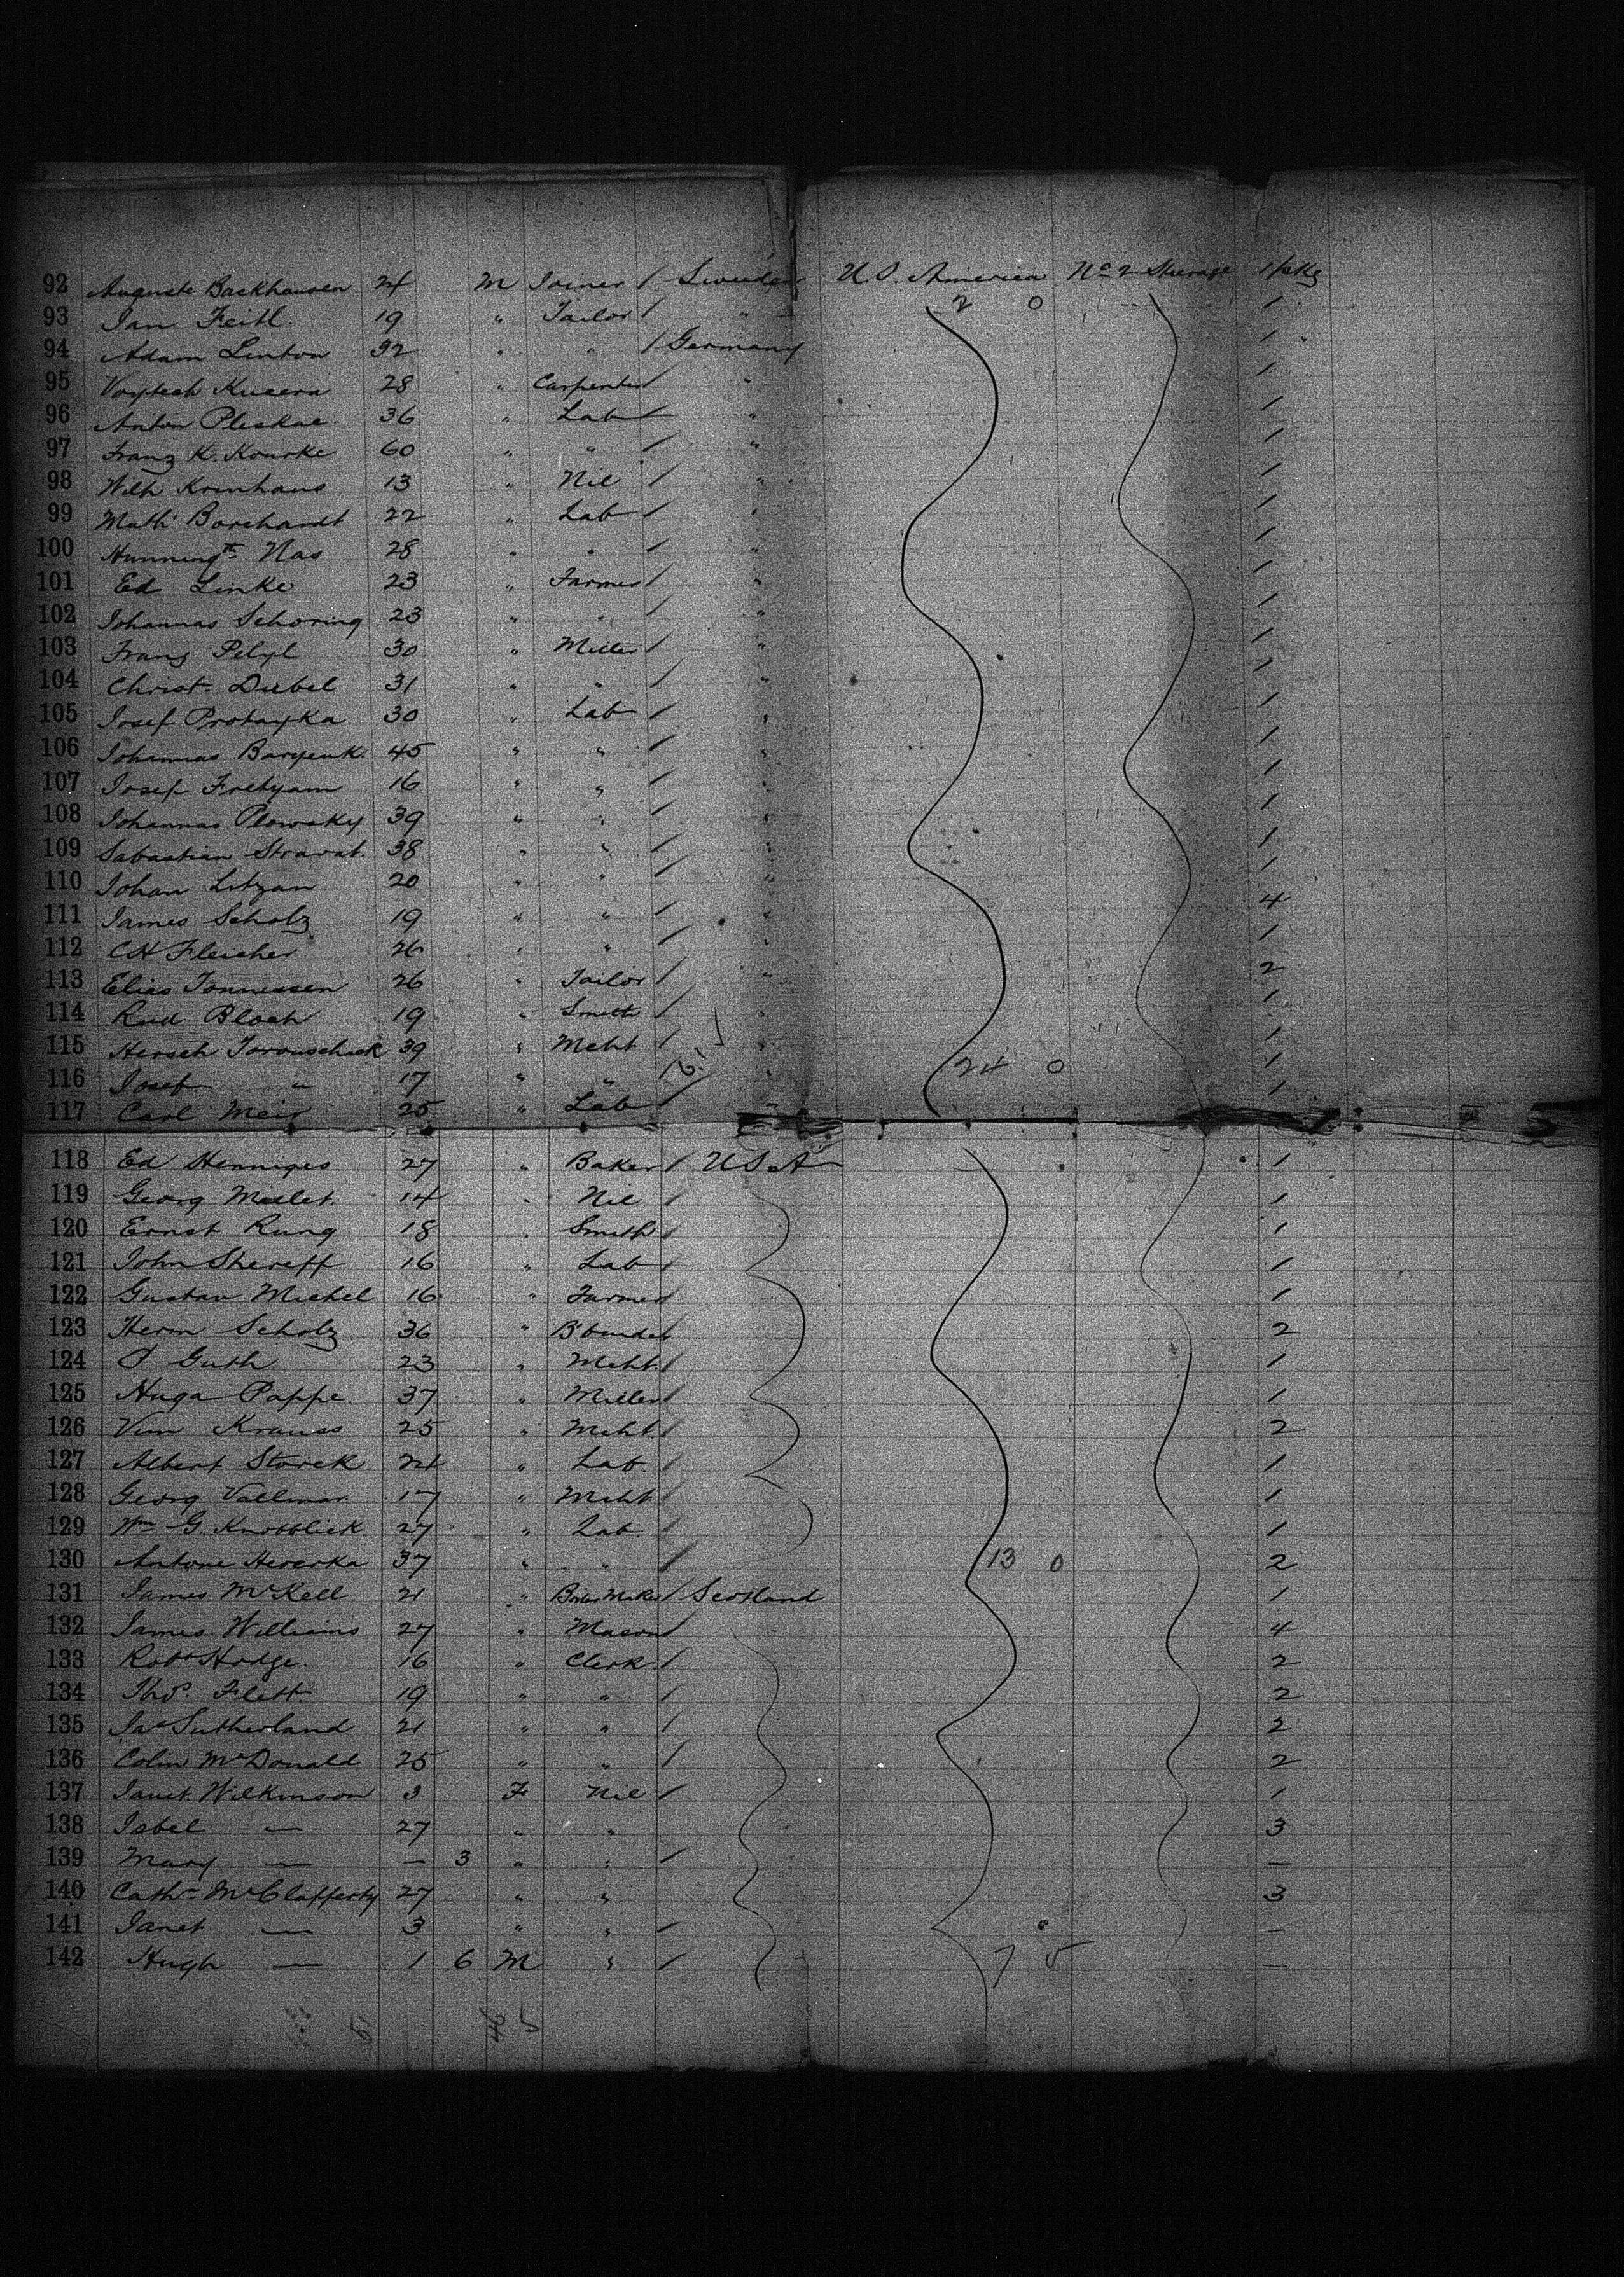 92 Auguste Backhausen 24 M Joiner / Sweeden U.S. America No 2 Steerage 1 pkg
93 Jan Feitl. 19 " Tailor / " 2 0 1
94 Adam Linton 32 " " / Germany 1 "
95 Voytech Kucera 28 " Carpenter / " 1
96 Anton Pleskac 36 " Lab / " 1
97 Franz K. Kourke 60 " " / " 1
98 Wilh Krinhaus 13 " Nil / " 1
99 Math Borchardt 22 " Lab / " 1
100 Nas 28 " " / " 1
101 Ed Linke 23 " Farmer / " 1
102 Johannas Schoring 23 " " / " 1
103 Franz Pelyl 30 " Miller / " 1
104 Christ. Diebel 31 " " / " 1
105 Josef Protayka 30 " Lab / " 1
106 Johannas Baryenk. 45 " " / " 1
107 Josef Fretyam 16 " " / " 1
108 Johannas Plowsky 39 " " / " 1
109 Sabastian Stravat. 38 " " / " 1
110 Johan Litzan 20 " " / " 1
111 James Scholz 19 " " / " 4
112 CH Fleicher 26 " " / " 1
113 Elias Tonnessen 26 " Tailor / " 2
114 Rud Bloch 19 " Smith / " 1
115 Hersch Torouschack 39 " Mcht / " 1
116 Josef " 17 " " / " 24 0 1
117 Carl Meir 25 " Lab / 1
118 Ed Henniges 27 " Baker / U S A 1
119 Georg Mellet. 14 " Nil / 1
120 Ernst Rung 18 " Smith / 1
121 John Shereff 16 " Lab / 1
122 Gustav Michel 16 " Farmer / 1
123 Herm Scholz 36 " B'binder / 2
124 Guth 23 " Mcht. / 1
125 Huga Pappe 37 " Miller / 1
126 Krauss 25 " Mcht. / 2
127 Albert Storck 24 " Lab. / 1
128 Georg Vallmar 17 " Mcht / 1
129 Wm G. Knobblick. 27 " Lab. / 1
130 Antone Hererka 37 " " / 13 0 2
131 James McKell 21 " Boiler Maker / Scotland 1
132 James Williams 27 " Mason / 4
133 Robt Hodge. 16 " Clerk / 2
134 Thos. Flett 19 " " / 2
135 Jas Sutherland 21 " " / 2
136 Colin McDonald 25 " " / 2
137 Janet Wilkinson 3 F Nil / 1
138 Isbel — 27 " " 3
139 Mary — — 3 " " / —
140 Cathn McClafferty 27 " " 3
141 Janet — 3 " " / —
142 Hugh — 1 6 M " / 7 5 —